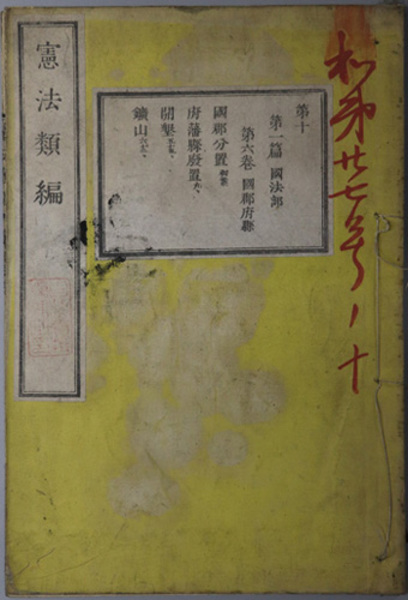 和第廿七号ノ十
第十
第一篇 國法部
第六卷 國郡府縣
國郡分置
府藩縣廢置
開墾
鑛山
憲法類編